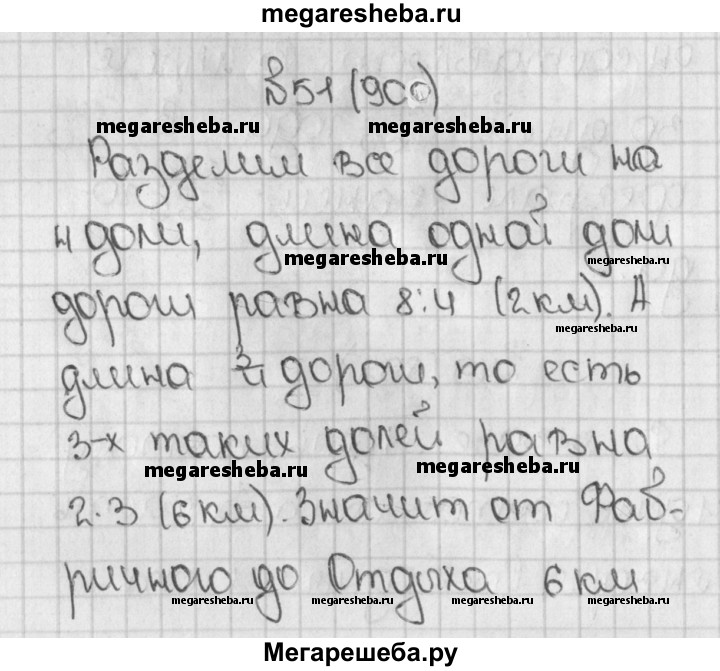 megaresheba.ru
№51 (900)
megaresheba.ru megaresheba.ru
Разделим все дороги на
4 доли, длина одной доли
megaresheba.ru megaresheba.ru
дороги равна 8:4 (2км). А
megaresheba.ru
длина 3/4 дороги, то есть
3-х таких долей равна
megaresheba.ru megaresheba.ru
2·3 (6км). Значит от Фаб-
ричного до Отдыха 6км
megaresheba.ru megaresheba.ru megaresheba.ru megaresheba.ru
Мегарешеба.ру